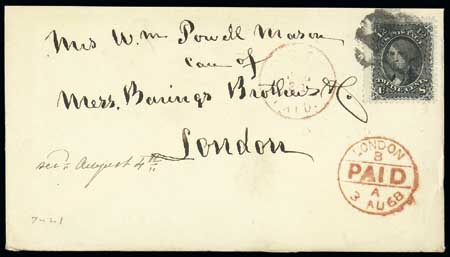 Mrs Wm Powell Mason
care of
Mess. Barings Brothers & Co.
London
recd August 4th
7-21
PAID
12 U.S. POSTAGE 12
U TWELVE CENTS S
LONDON
B
PAID
A
3 AU 68